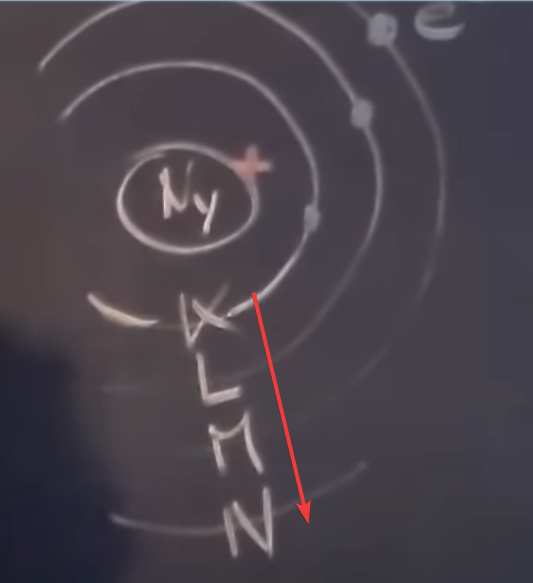 e
+
Ny
K
L
M
N